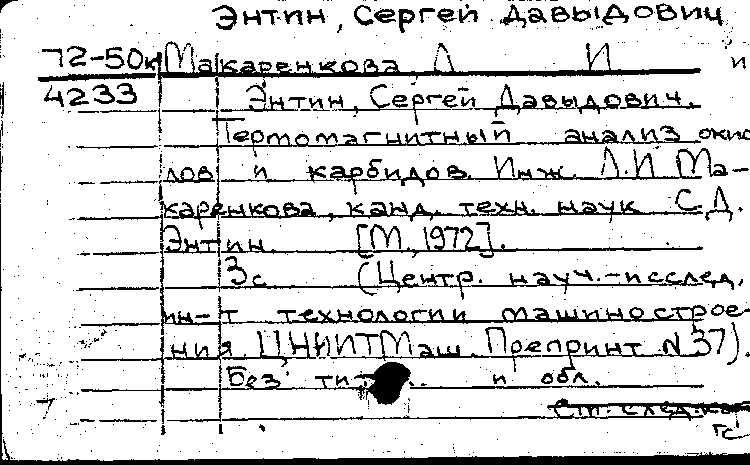 Энтин, Сергей Давыдович
72-50к Макаренкова, Л И и
4233 Энтин, Сергей Давыдович.
Термомагнитный анализ окис
лов и карбидов. Инж. Л.И Ма-
каренкова, канд. техн. наук С.Д.
Энтин. [М., 1972].
3с (Центр. науч.-исслед.
ин-т технологии машинострое-
ния ЦНИИТМаш. Препринт N 37).
Без и обл.
См. след.